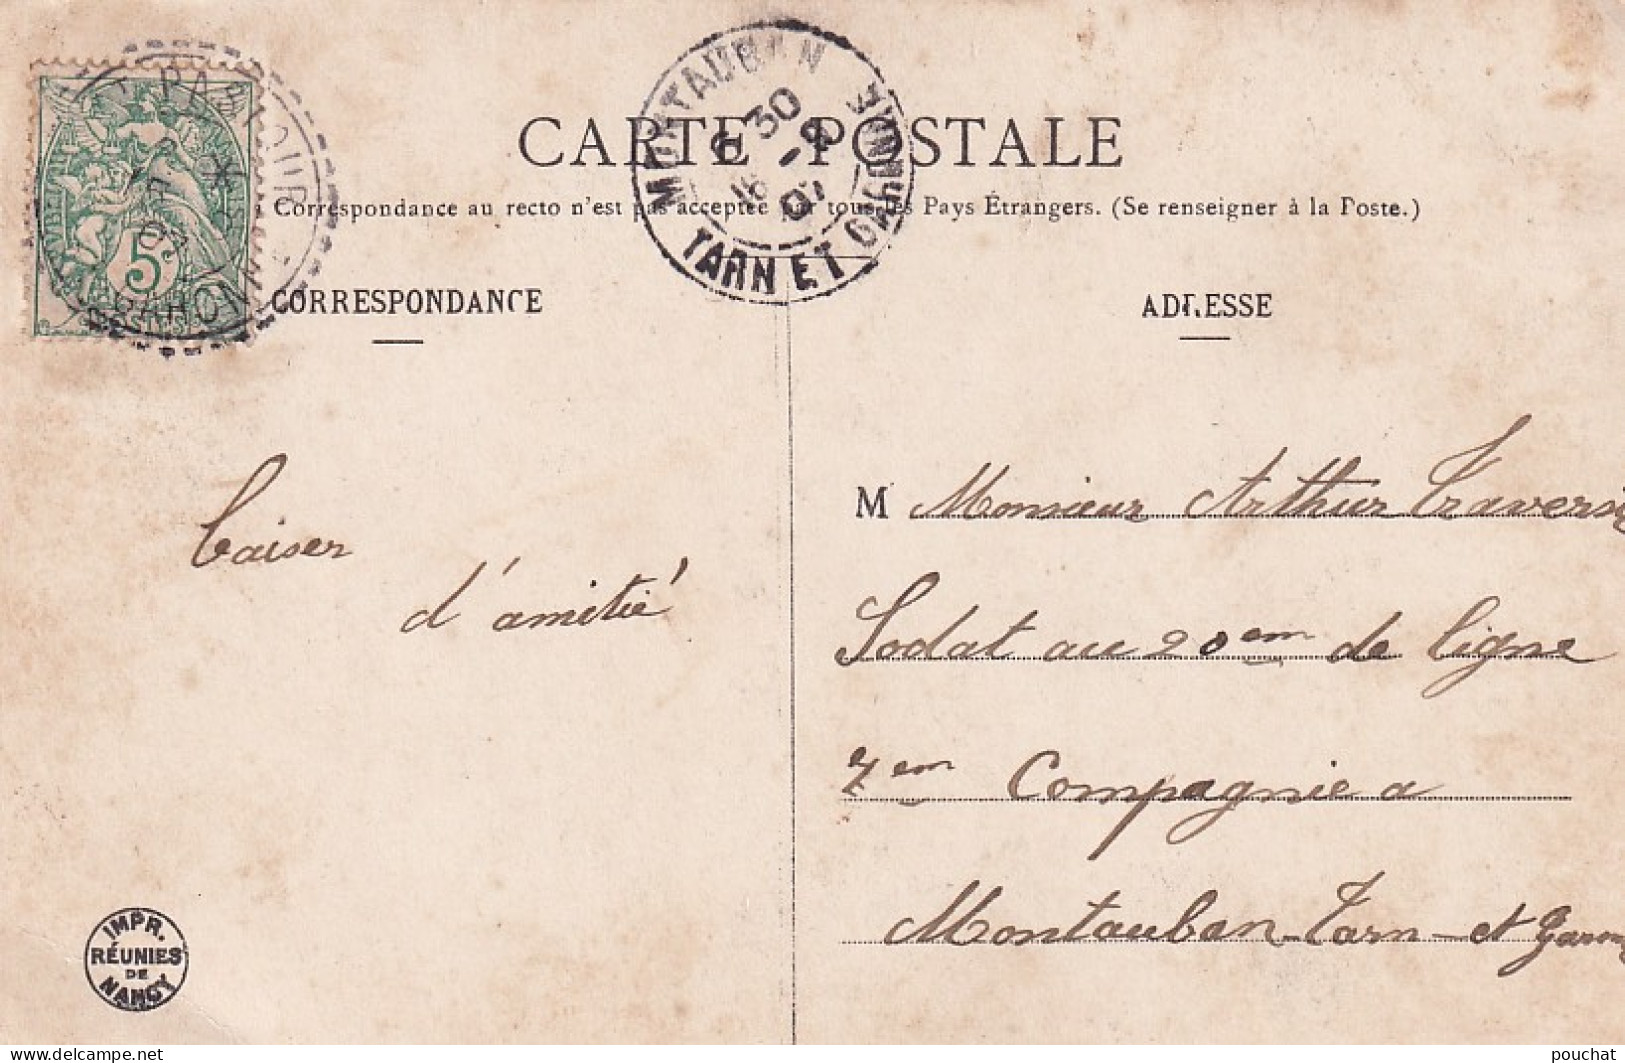 CARTE POSTALE
Correspondance au recto n'est pas acceptée par tous les Pays Étrangers. (Se renseigner à la Poste.)
CORRESPONDANCE
ADRESSE
5c
MONTAUBAN
6 30
16 - 8
07
TARN ET GARONNE
baiser
d'amitié
M Monsieur Arthur
Sodat au 20em de ligne
7em Compagnie a
Montauban - Tarn - et
IMPR.
RÉUNIES
DE
NANCY
delcampe.net
pouchat